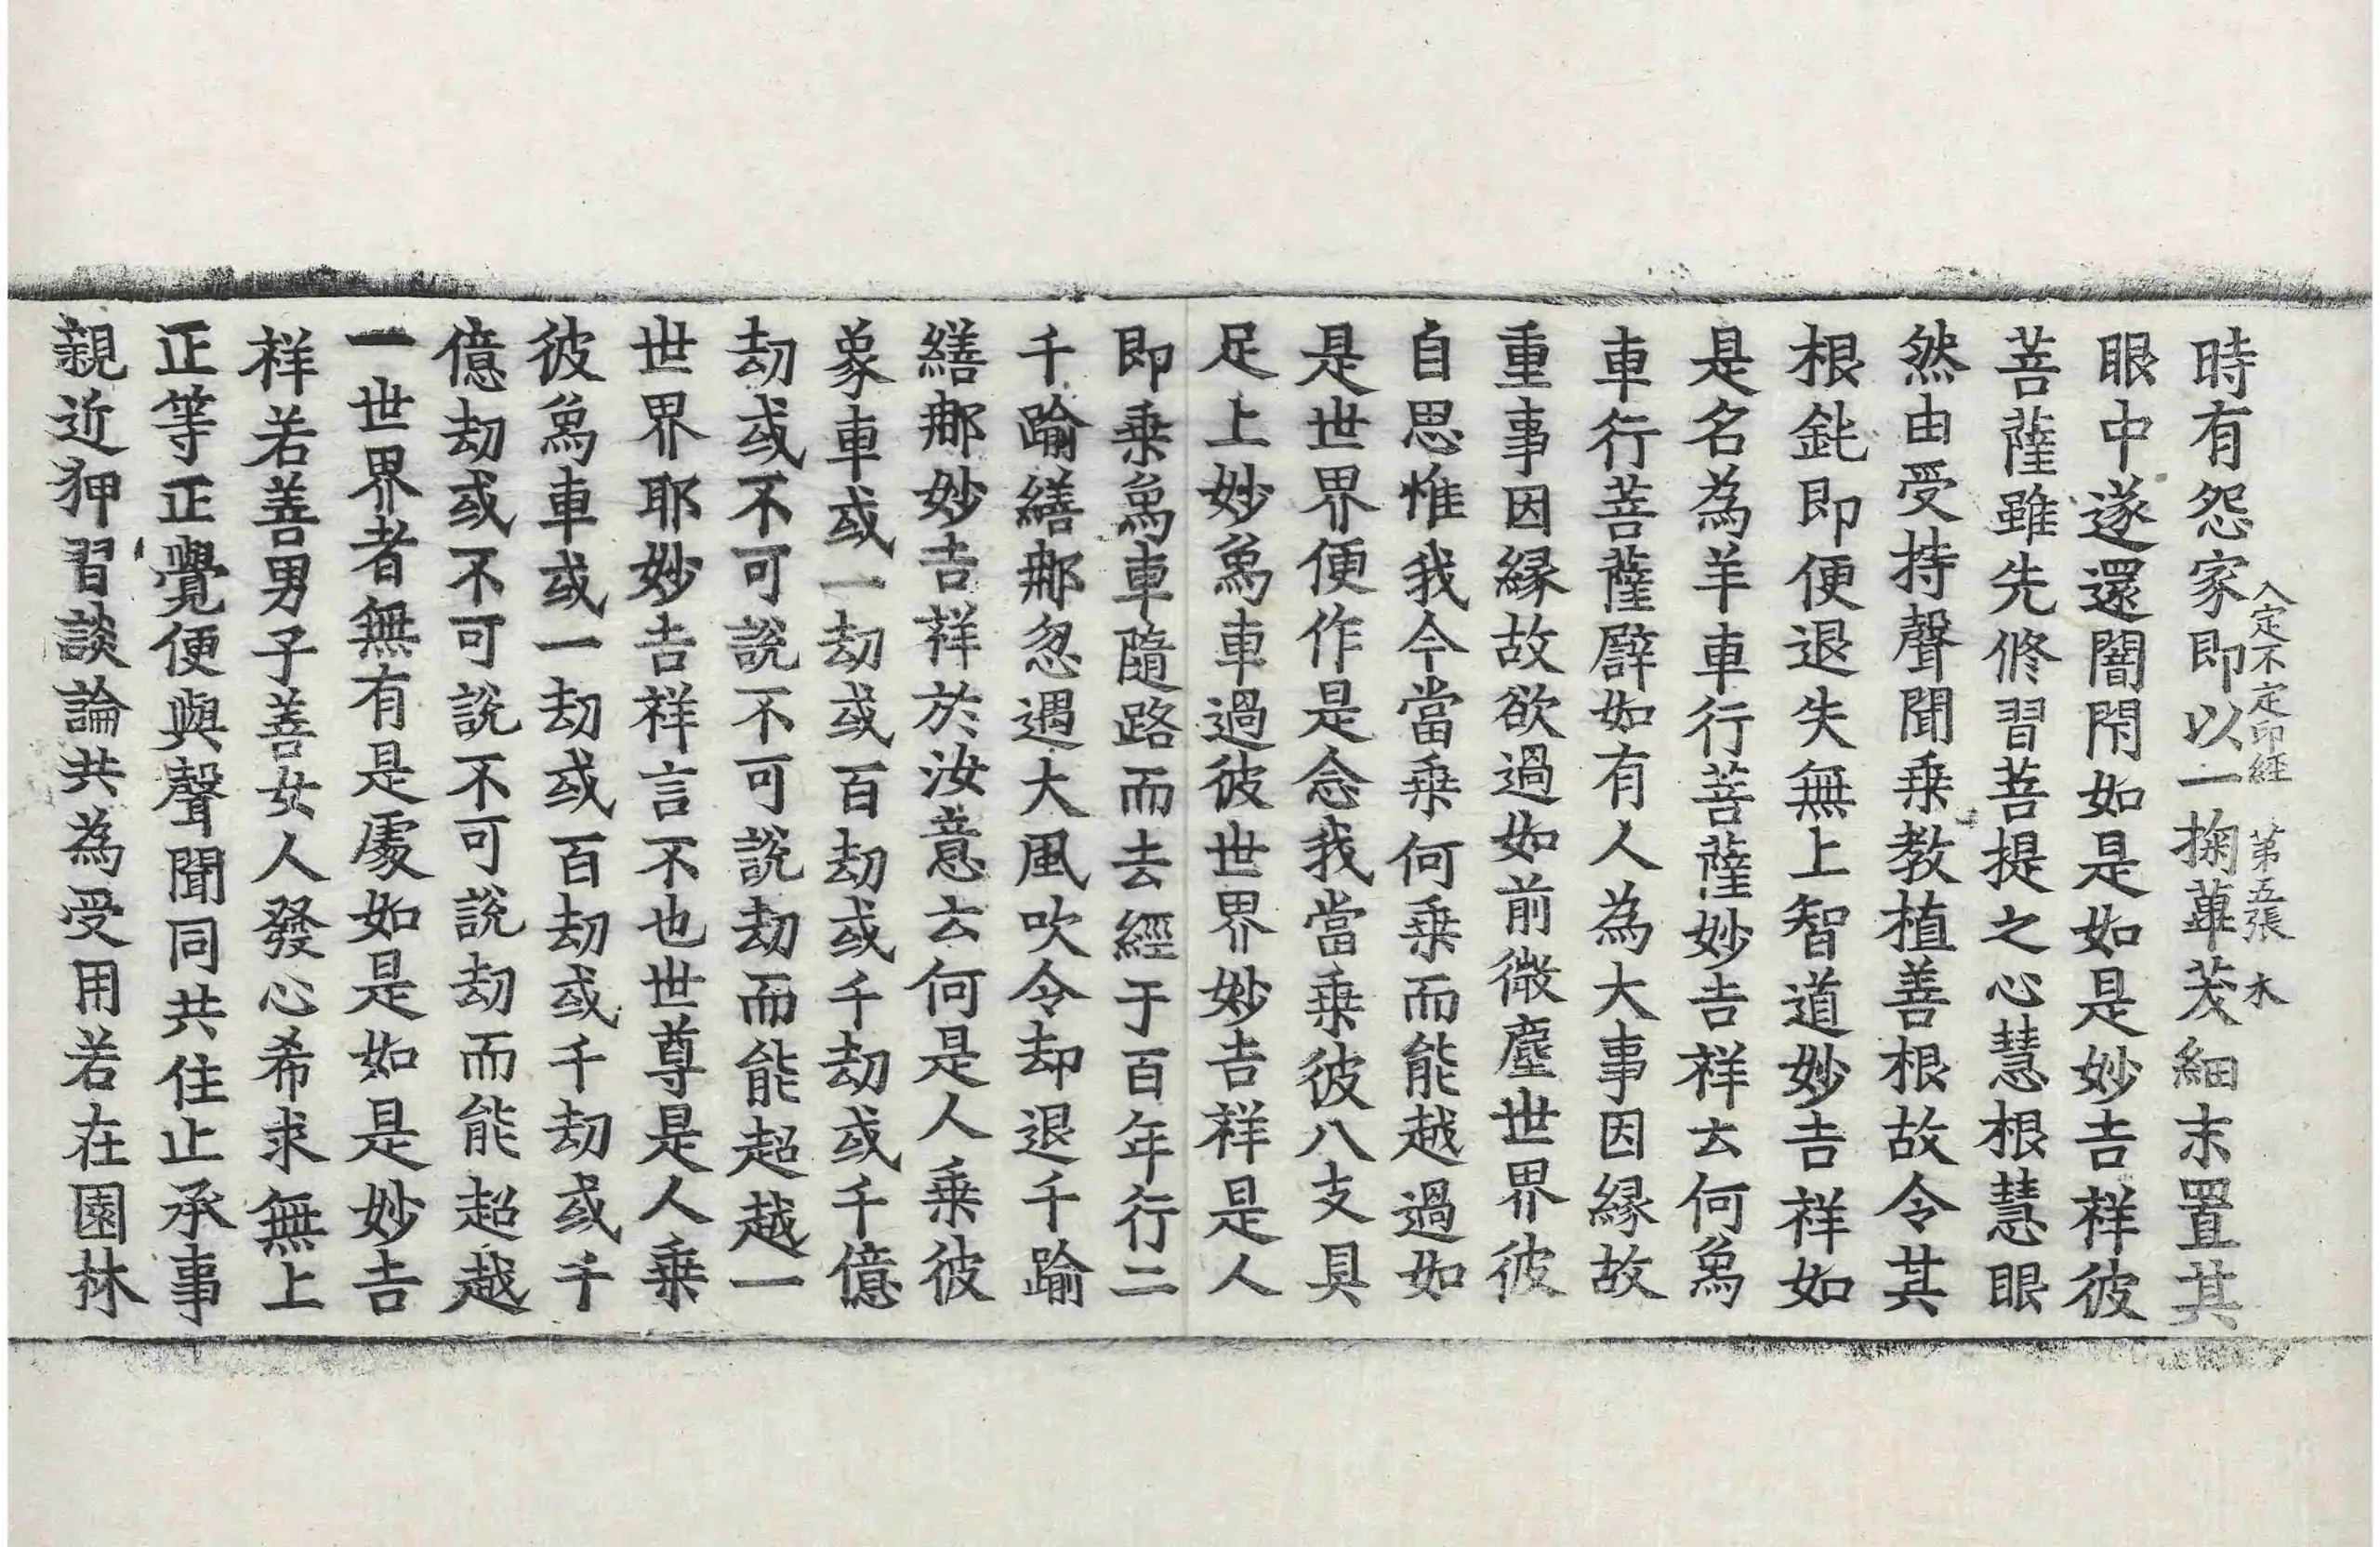 入定不定印經　第五張　木
時有怨家即以一掬蓽茇細末置其
眼中遂還闇閇如是如是妙吉祥彼
菩薩雖先修習菩提之心慧根慧眼
然由受持聲聞乗教植善根故令其
根鈍即便退失無上智道妙吉祥如
是名為羊車行菩薩妙吉祥云何爲
車行菩薩譬如有人為大事因縁故
重事因縁故欲過如前微塵世界彼
自思惟我今當乗何乗而能越過如
是世界便作是念我當乗彼八支具
足上妙爲車過彼世界妙吉祥是人
即乗爲車隨路而去經于百年行二
千踰繕那忽遇大風吹令却退千踰
繕那妙吉祥於汝意云何是人乗彼
象車或一劫或百劫或千劫或千億
劫或不可說不可說劫而能超越一
世界耶妙吉祥言不也世尊是人乗
彼爲車或一劫或百劫或千劫或千
億劫或不可說不可說劫而能超越
一世界者無有是處如是如是妙吉
祥若善男子善女人發心希求無上
正等正覺便與聲聞同共住止承事
親近狎習談論共為受用若在園林